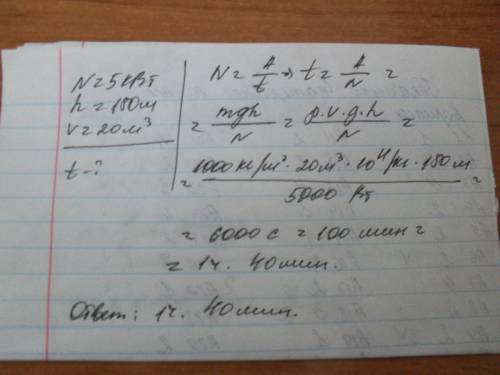 N=5кВт
h=150м
V=20м³
t-?
N=A/t => t=A/N=
=mgh/N=p.v.g.h/N=
=1000кг/м³·20м³·10Н/кг·150м/5000Вт=
=6000с=100мин=
=1ч. 40мин.
Ответ: 1ч. 40мин.